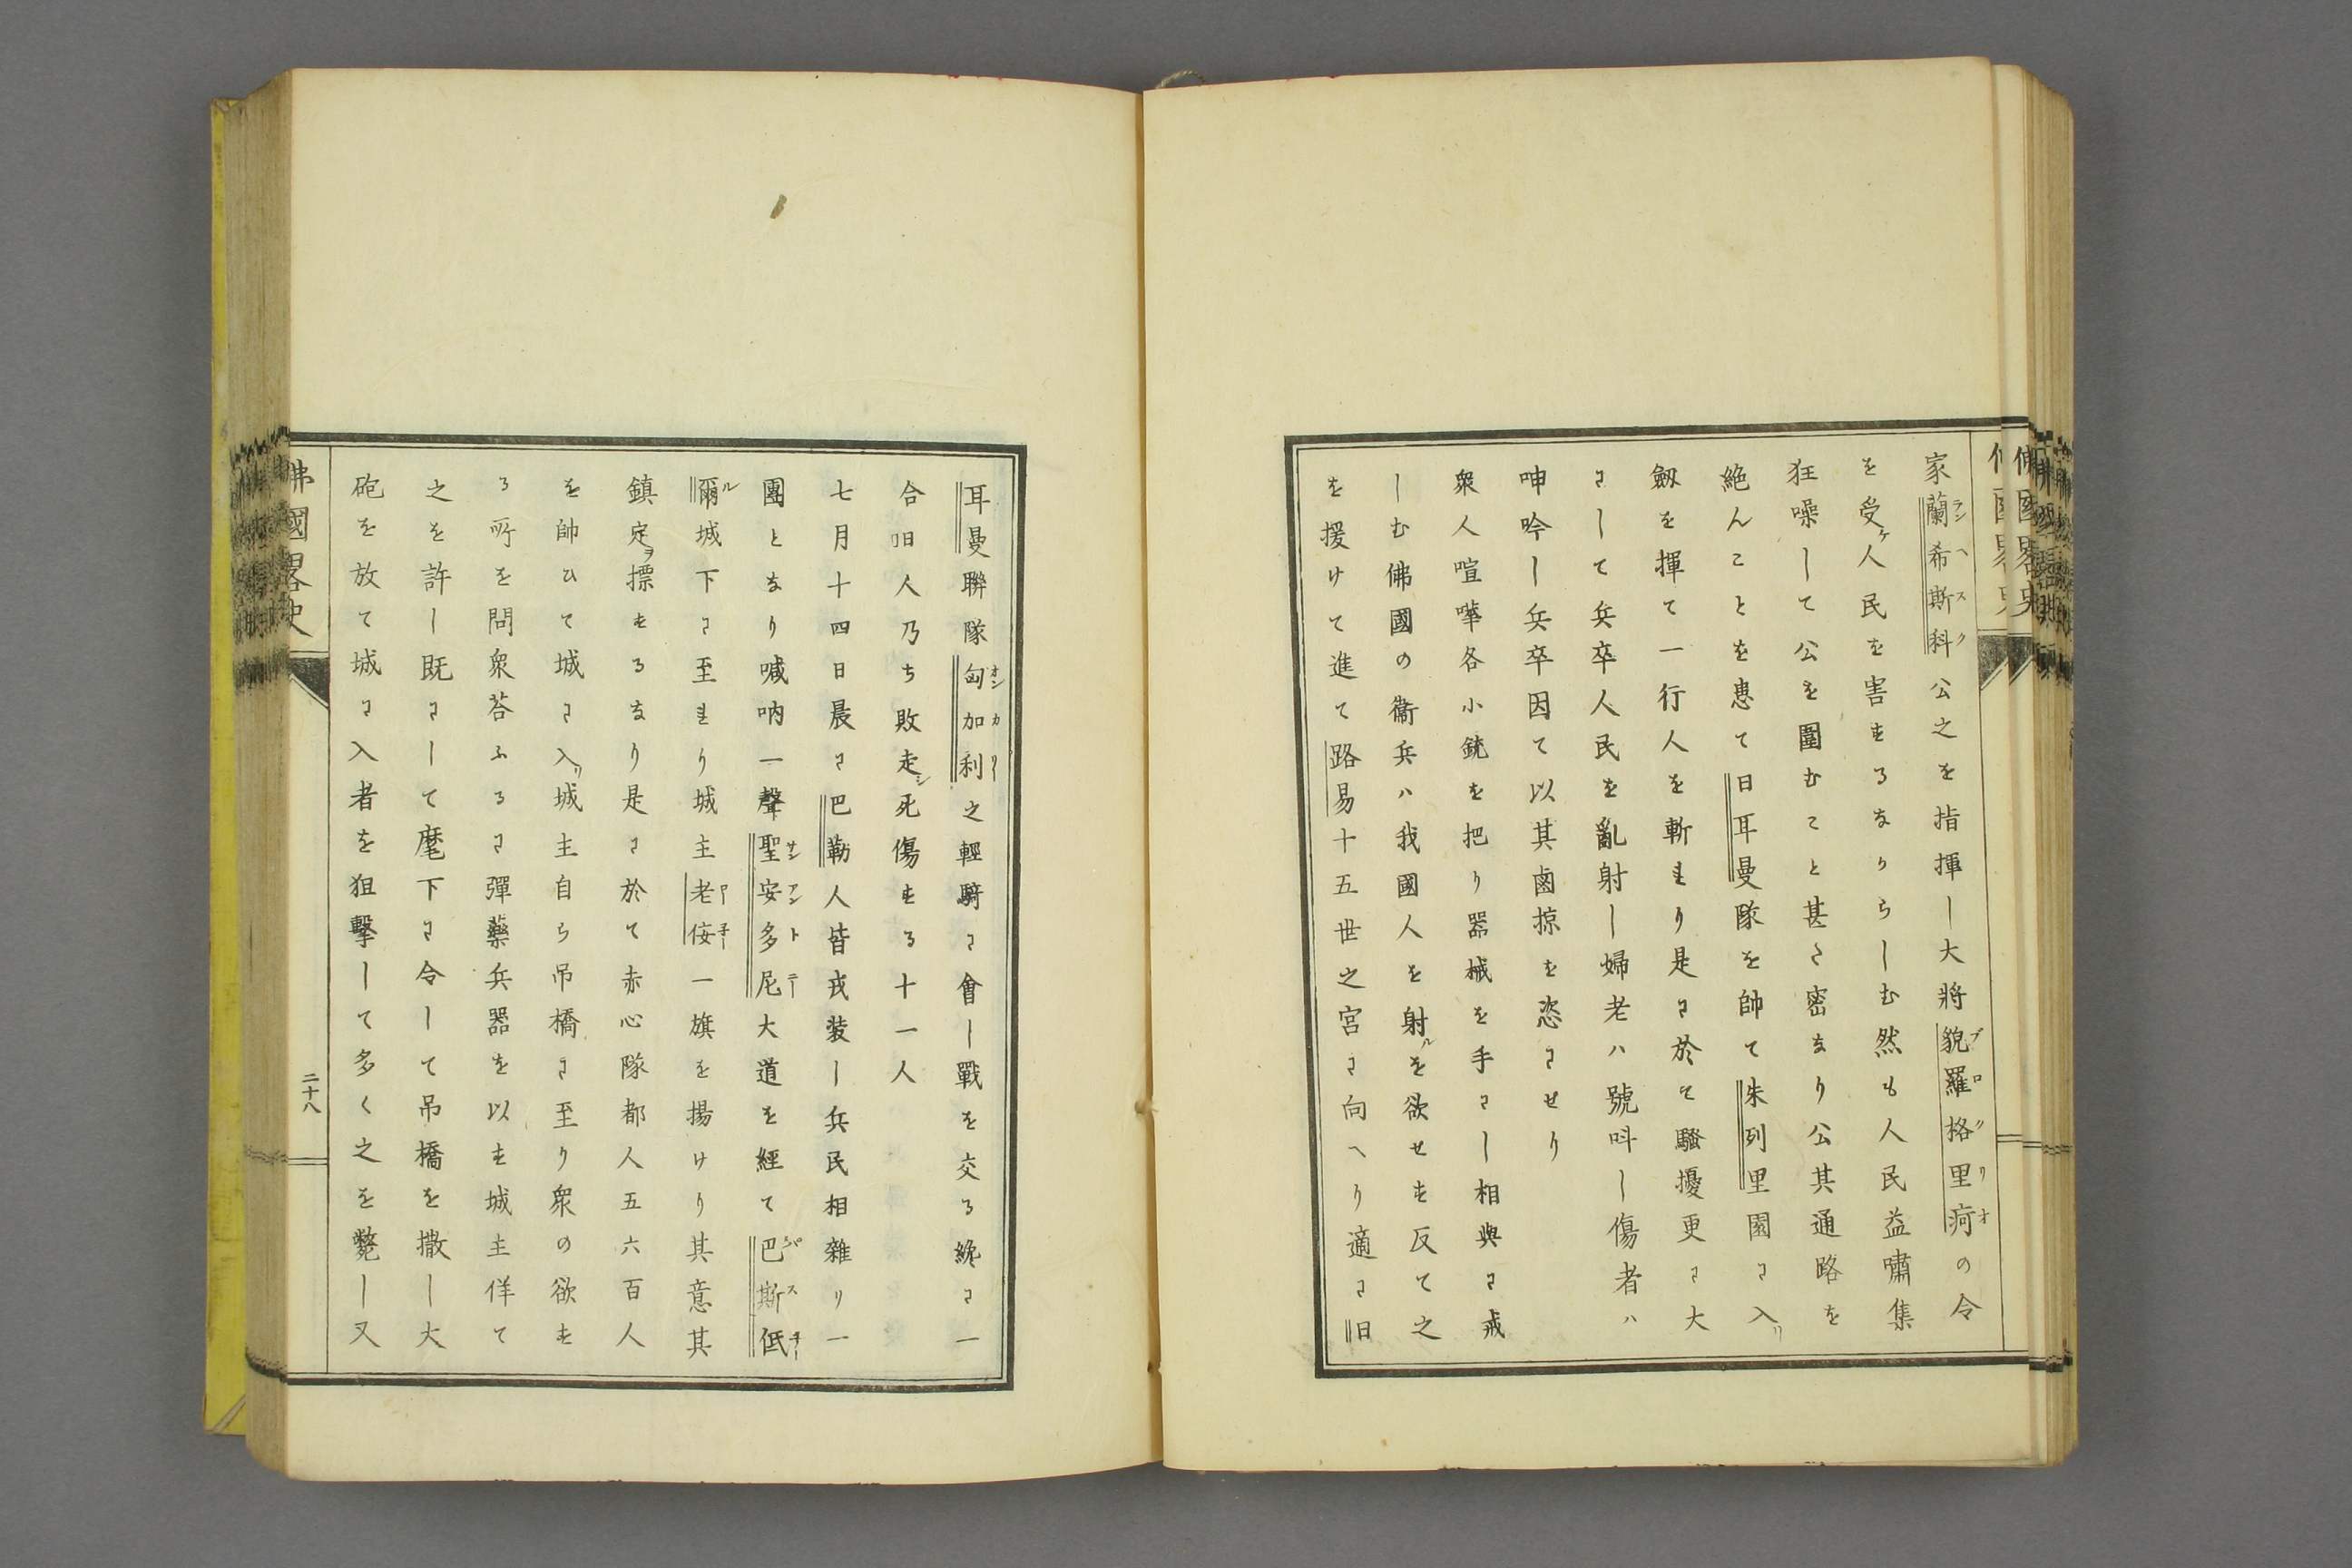 家蘭希斯科公之を指揮し大將貌羅格里疴の令
を受ヶ人民を害する𛂁からしむ然も人民益嘯集
狂噪して公を圍むこと甚た密なり公其通路を
絶んことを患て日耳曼隊を帥て朱列里園に入リ
劔を揮て一行人を斬れり是に於て騷擾更に大
にして兵卒人民を亂射し婦老ハ號呌し傷者ハ
呻吟し兵卒因て以其鹵掠を恣にせり
衆人喧嘩各小銃を把り器械を手にし相與に戒
しむ佛國の衞兵ハ我國人を射ルを欲せす反て之
を援けて進て路易十五世之宮に向へり適に日
耳曼聯隊匈加利之輕騎に會し戰を交る終に一
合㫖人乃ち敗走シ死傷する十一人
七月十四日晨に巴勒人皆戎裝し兵民相雜り一
團となり喊吶一聲聖安多尼大道を經て巴斯低
爾城下に至れり城主老侫一旗を揚けり其意其
鎮定ヲ標するなり是に於て赤心隊都人五六百人
を帥ひて城に入リ城主自ら吊橋に至り衆の欲す
る所を問衆荅ふるに彈藥兵器を以す城主佯て
之を許し既にして麾下に令して吊橋を撒し大
砲を放て城に入者を狙擊して多く之を斃し又
佛國畧史
二十八